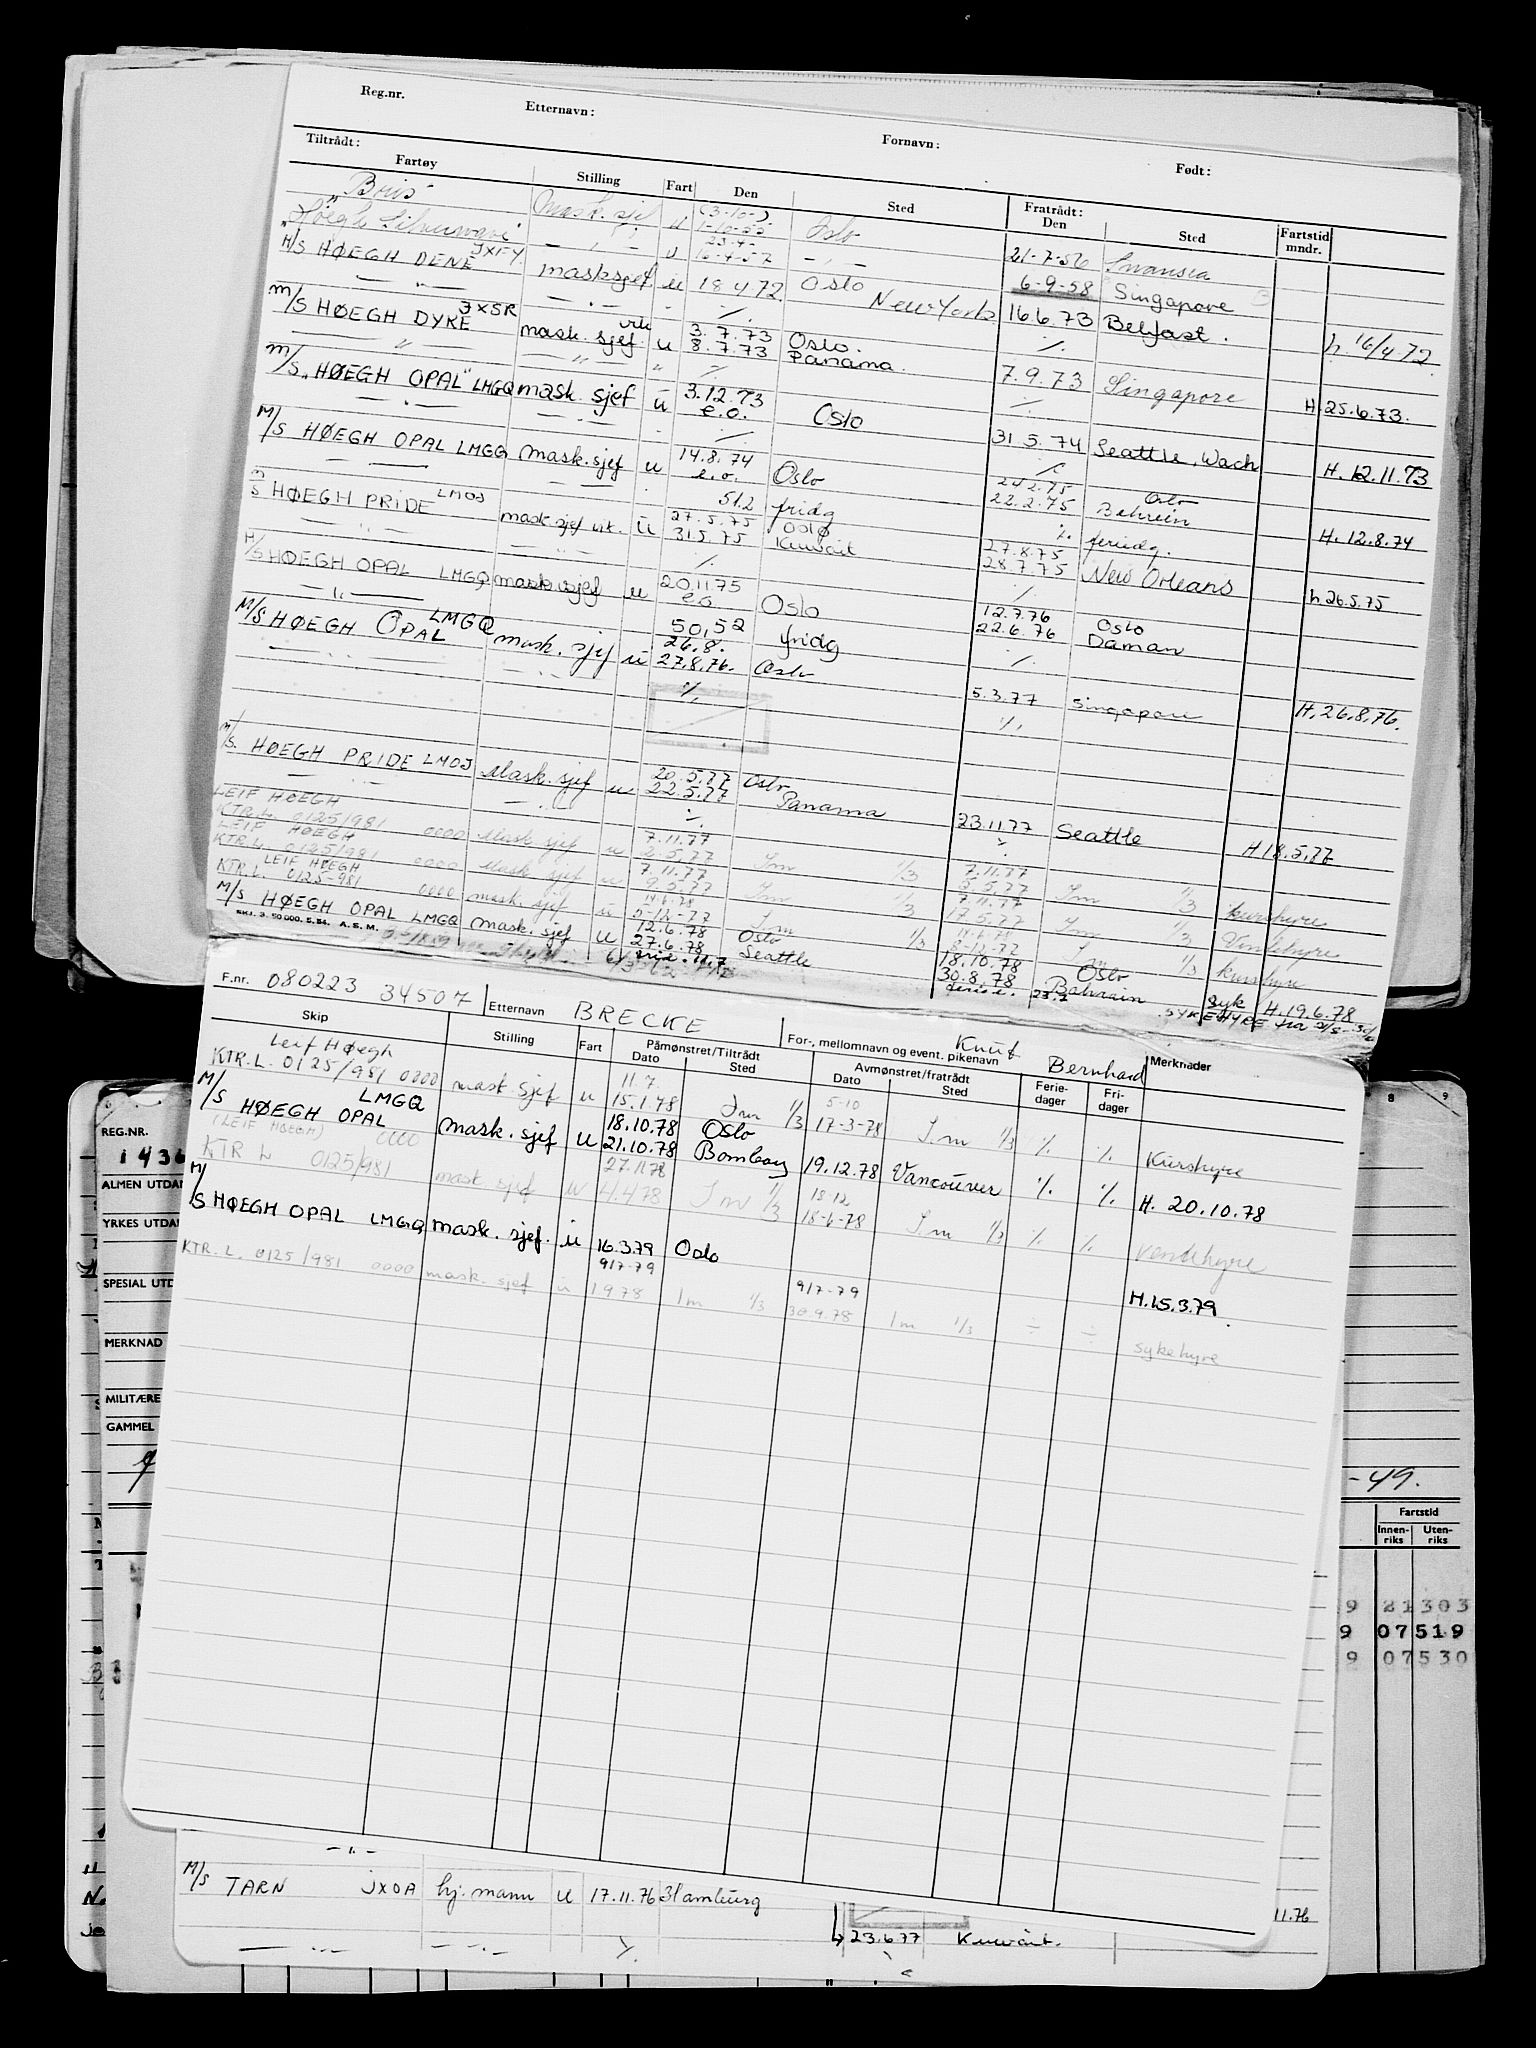 Reg.nr. Etternavn: Fornavn: Født:
Tiltrådt: Fratrådt:
Fartøy Stilling Fart Den Sted Den Sted Fartstid mndr.
"Bris" Mask. sjef u (3-10-) 1-10-55 Oslo 21-7-56 Swansea
"Høegh Silverwave" — " — u 23.4- 16-4-57 — " — 6-9-58 Singapore
M/S HØEGH DENE JXFY masksjef. u 18 4 72 Oslo 16.6.73 Belfast. h. 16/4 72
— " — — " — - ./. New York ./.
M/S HØEGH DYKE JXSR mask. sjef. vik u 3.7.73 Oslo. 7.9.73 Singapore H. 25.6.73.
8.7.73 Panama.
— " — — " — " ./. ./.
M/S "HØEGH OPAL" LMGQ mask. sjef u 3.12.73 Oslo 31 5.74 Seattle, Wach H. 12.11.73
e.o.
— " — — " — - ./. ./.
M/S HØEGH OPAL LMGQ mask. sjef u 14.8.74 Oslo 24.2.75 Oslo H. 12.8.74
e.o. 22.2.75 Bahrein
51.2 fridg ./. feriedg.
M/S HØEGH PRIDE LMOJ mask sjef vik. u 27.5.75 Oslo 27.8.75 h. 26.5.75
31.5.75 Kuwait 28.7.75 New Orleans
— " — — " — ./. ./.
M/S HØEGH OPAL LMGQ mask sjef u 20.11.75 Oslo 12.7.76 Oslo
e.o. 22.6.76 Daman
— " — 50,52 fridg ./.
M/S HØEGH OPAL LMGQ mask. sjef u 26.8. Oslo 5.3.77 Singapore H. 26.8.76.
27.8.76.
./. ./.
M/S HØEGH PRIDE LMOJ Mask. sjef u 20.5.77 Oslo 23.11.77 Seattle H 18.5.77
22.5.77 Panama
— " — — " — ./. ./.
LEIF HØEGH 7.11.77 7.11.77
KTR.L. 0125/981 0000 Mask sjef u 2.5.77 Im 1/3 3.5.77 Im 1/3 kurshyre
LEIF HØEGH 7.11.77 7.11.77
KTR.L. 0125/981 0000 Mask sjef u 9.5.77 Im 1/3 17.5.77 Im 1/3 Ventehyre
LEIF HØEGH 14.6.78 14.6.78
KTR.L. 0125-981 0000 mask. sjef u 5-12-77 Im 1/3 8-12-77 Im 1/3 kurshyre
M/S HØEGH OPAL LMGQ mask. sjef u 12.6.78 Oslo 18.10.78 Oslo syk H. 19.6.78
27.6.78 Seattle 30.8.78 Bahrain SYKEHYRE fra
SKJ. 3. 50 000. 5.54. A. S. M.
23.2
F.nr. 080223 34507 Etternavn BRECKE For-, mellomnavn og event. pikenavn Knut Bernhard
Skip Stilling Fart Påmønstret/Tiltrådt Dato Sted Avmønstret/fratrådt Dato Sted Ferie-dager Fri-dager Merknader
Leif Høegh 11.7. 5-10
KTR.L. 0125/981 0000 mask sjef u 15.1.78 Im 1/3 17-3-78 Im 1/3 ./. ./. Kurshyre
M/S HØEGH OPAL LMGQ mask. sjef u 18.10.78 Oslo 19.12.78 Vancouver ./. ./. H. 20.10.78
21.10.78 Bombay
(LEIF HØEGH) 27.11.78 18.12
KTR L 0125/981 0000 mask sjef u 4.4.78 Im 1/3 18-6-78 Im 1/3 ./. ./. Ventehyre
M/S HØEGH OPAL LMGQ mask. sjef. u 16.3.79 Oslo H. 15.3.79.
9/7-79 9/7-79
KTR. L. 0125/981 0000 mask. sjef u 1 9 78 Im 1/3 30.9.78 Im 1/3 ÷ ÷ sykehyre
REG.NR.
1436
ALMEN UTDA
YRKES UTDA
SPESIAL UTD
MERKNAD
MILITÆRE
GAMMEL
8 9
-49.
Fartstid
Innen-riks Uten-riks
9 21303
9 07519
9 07530
— " —
M/S TARN JXOA hj. mann u 17.11.76 Hamburg 11.76
23.6.77 Kuwait.
— " — — " — ./.